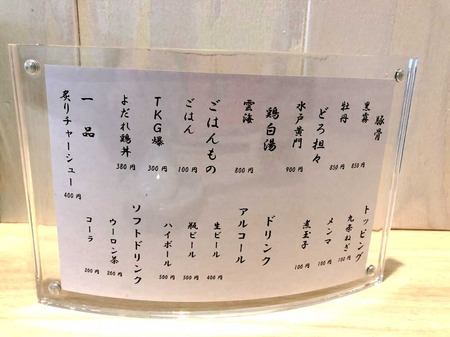 豚骨
黒霧 850円
牡丹 850円
どろ担々
水戸黄門 900円
鶏白湯
雲海 800円
ごはんもの
ごはん 100円
TKG爆 300円
よだれ鶏丼 380円
一品
炙りチャーシュー 400円
トッピング
九条ねぎ 100円
メンマ 100円
煮玉子 100円
ドリンク
アルコール
生ビール 400円
瓶ビール 500円
ハイボール 500円
ソフトドリンク
ウーロン茶 200円
コーラ 200円